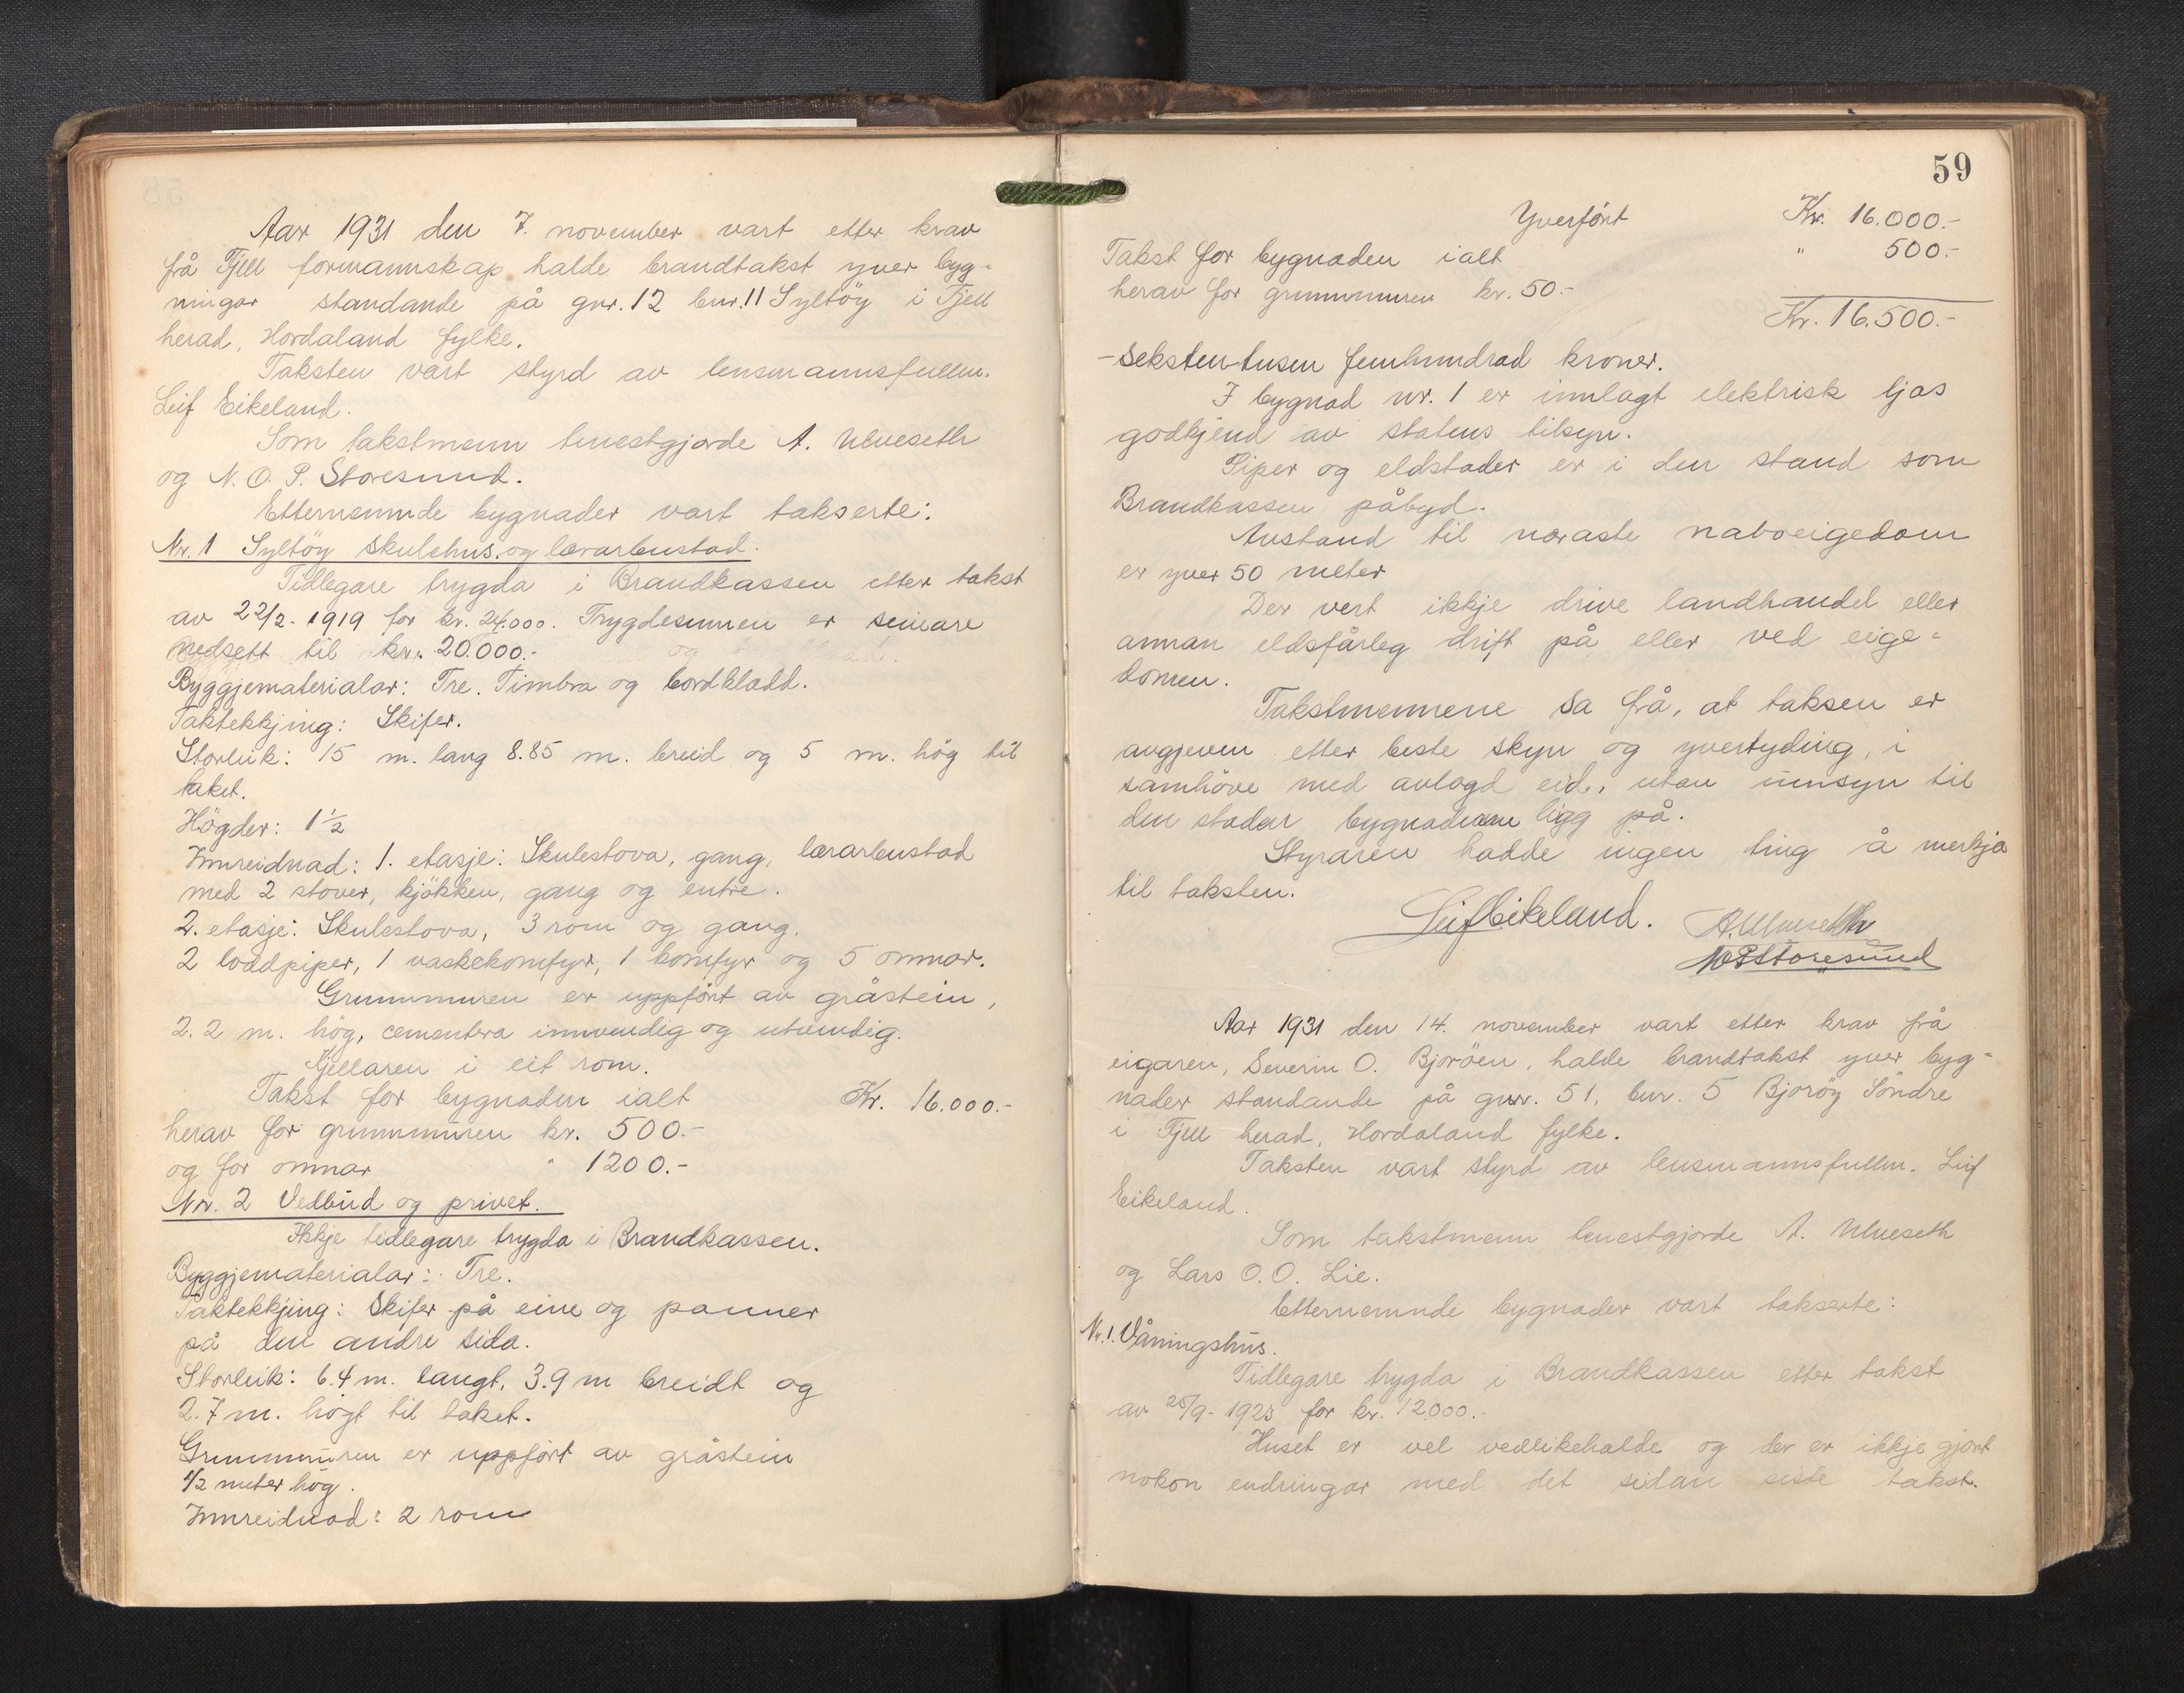 Aar 1931 den 7. november vart etter krav
frå Fjell formannskap halde brandtakst yver byg-
ningar standande på gnr. 12 bnr. 11 Syltöy i Fjell
herad, Hordaland fylke.
Taksten vart styrd av lensmannsfullm.
Leif Eikeland.
Som takstmenn tenestgjorde A. Ulveseth
og N. O. P. Storesund.
Etternemnde bygnader vart takserte:
Nr. 1 Syltöy skulehus og lærarbustad.
Tidlegare trygda i Brandkassen etter takst
av 22/2-1919 for kr. 24.000. Trygdesumen er seinare
nedsett til kr. 20.000.-
Byggjematerialar: Tre. Timbra og bordklædd.
Taktekkjing: Skifer.
Storleik: 15 m. lang 8.85 m. breid og 5 m. hög til
taket.
Högder: 1 1/2
Innreidnad: 1. etasje: Skulestova, gang, lærarbustad
med 2 stover, kjökken, gang og entre.
2. etasje: Skulestova, 3 rom og gang.
2 loddpiper, 1 vaskekomfyr, 1 komfyr og 5 omnar.
Grunnmuren er uppfört av gråstein,
2.2 m. hög, cementera innvendig og utvendig.
Kjellaren i eit rom.
Takst for bygnaden ialt Kr. 16.000.-
herav for grunnmuren kr. 500.-
og for omnar " 1200.-
Nr. 2 Vedbud og privet.
Ikkje tidlegare trygda i Brandkassen.
Byggjematerialar: Tre.
Taktekkjing: Skifer på eine og panner
på den andre sida.
Storleik: 6.4 m. langt, 3.9 m breidt og
2.7 m. högt til taket.
Grunnmuren er uppfört av gråstein
1/2 meter hög.
Innreidnad: 2 rom
59
Yverfört Kr. 16.000.-
Takst for bygnaden ialt " 500.-
herav for grunnmuren kr. 50.-
Kr. 16.500.-
- Seksten tusen femhundrad kroner.
I bygnad nr. 1 er innlagt elektrisk ljos
godkjend av statens tilsyn.
Piper og eldstader er i den stand som
Brandkassen påbyd.
Avstand til næraste naboeigedom
er yver 50 meter
Der vert ikkje drive landhandel eller
annan eldsfårleg drift på eller ved eige-
domen.
Takstmennene sa frå, at taksen er
avgjeven etter beste skyn og yvertyding, i
samhöve med avlagd eid, utan innsyn til
den stader bygnadene ligg på.
Styraren hadde ingen ting å merkja
til taksten.
Leif Eikeland. A. Ulveseth
NOPStoresund
Aar 1931 den 14. november vart etter krav frå
eigaren, Severin O. Bjoröen, halde brandtakst yver byg-
nader standande på gnr. 51, bnr. 5 Bjoröy Söndre
i Fjell herad, Hordaland fylke.
Taksten vart styrd av lensmannsfullm. Leif
Eikeland.
Som takstmenn tenestgjorde A. Ulveseth
og Lars O. O. Lie.
Etternemnde bygnader vart takserte:
Nr. 1. Våningshus.
Tidlegare trygda i Brandkassen etter takst
av 25/9-1923 for kr. 12.000.-
Huset er vel vedlikehalde og der er ikkje gjort
nokon endringar med det sidan siste takst.